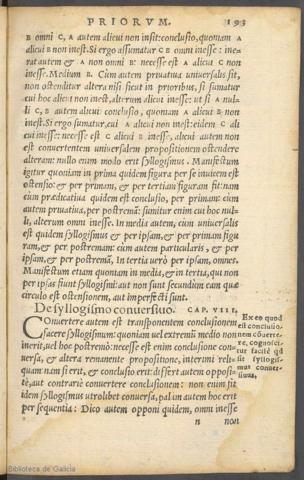 PRIORVM. 193
B omni C, A autem alicui non insit: conclusio, quoniam A
alicui B non inest. Si ergo assumatur C B omni inesse: ine-
rat autem & A non omni B: necesse est A alicui C non
inesse. Medium B. Cùm autem priuatiua vniuersalis sit,
non ostenditur altera nisi sicut in prioribus, si sumatur
cui hoc alicui non inest, alterum alicui inesse: vt si A nul-
li C, B autem alicui: conclusio, quoniam A alicui B non
inest. Si ergo sumatur, cui A alicui non inest: eidem C ali
cui inesse: necesse est C alicui B inesse, aliter autem non
est conuertentem vniuersalem propositionem ostendere
alteram: nullo enim modo erit syllogismus. Manifestum
igitur quoniam in prima quidem figura per se inuicem est
ostensio: & per primam, & per tertiam figuram fit: nam
cùm prædicatiua quidem est conclusio, per primam: cùm
autem priuatiua, per postremã: sumitur enim cui hoc nul-
li, alterum omni inesse. In media autem, cùm vniuersalis
est quidem syllogismus & per ipsam, & per primam figu
ram, & per postremam: cùm autem particularis, & per
ipsam, & per postremã, In tertia verò per ipsam, omnes.
Manifestum etiam quoniam in media, & in tertia, qui non
per ipsas fiunt syllogismi: aut non sunt secundùm eam quæ
circulo est ostensionem, aut imperfecti sunt.
De syllogismo conuersiuo. CAP. VIII.
Conuertere autem est transponentem conclusionem
facere syllogismum: quoniam vel extremũ medio non
inerit, vel hoc postremò: necesse est enim conclusione con-
uersa, & altera remanente propositione, interimi reli-
quam nam si erit, & conclusio erit: differt autem opposi-
tè, aut contrariè conuertere conclusionem: non enim fit
idem syllogismus vtrolibet conuersa, palàm autem hoc erit
per sequentia: Dico autem opponi quidem, omni inesse
n non
Ex eo quod
est conclusio-
nem cõuerte-
re, cognosci-
tur facilè qd
sit syllogis-
mus conuer-
siuus.
Biblioteca de Galicia